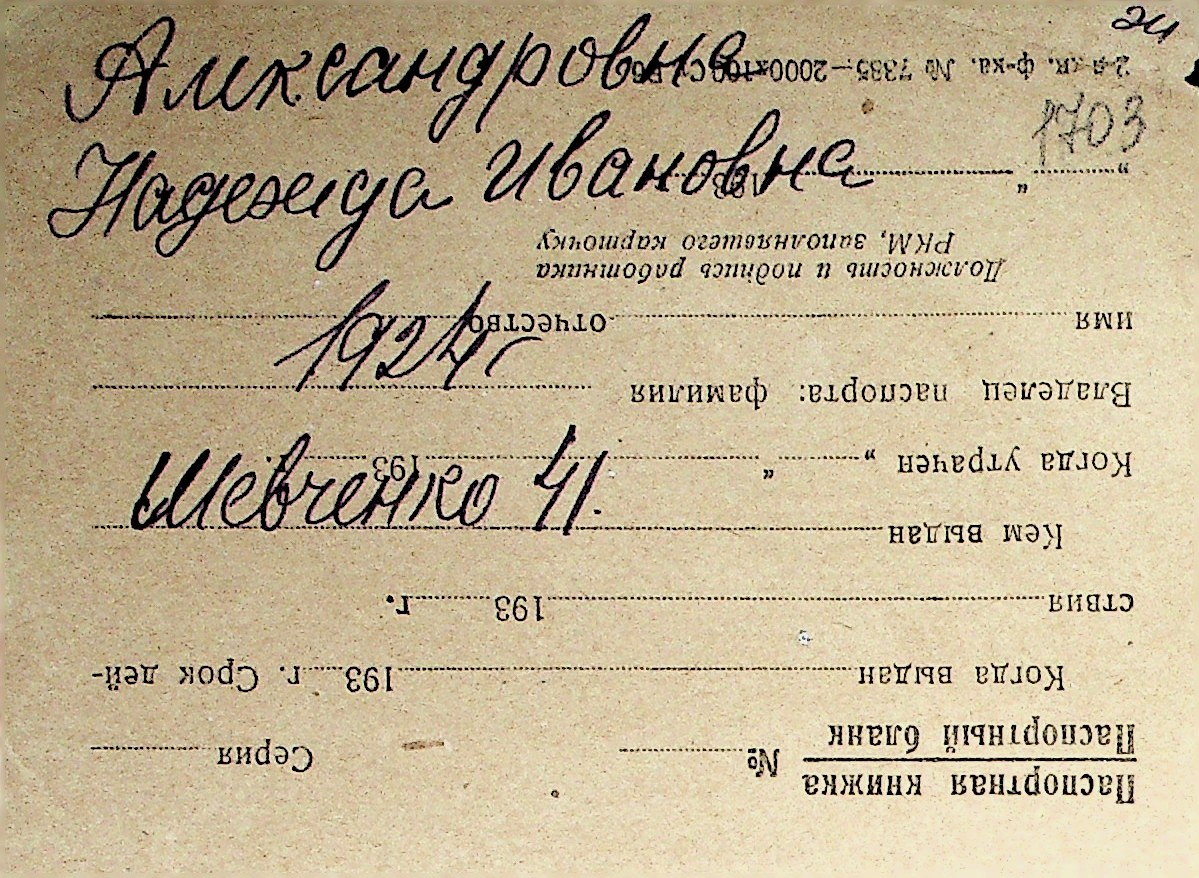 Александровна
Надежда Ивановна
1924 г
Шевченко 41.
1703
Паспортная книжка
Паспортный бланк
№ Серия
Когда выдан 193 г. Срок дей-
ствия 193 г.
Кем выдан
Когда утрачен „ “ 193
Владелец паспорта: фамилия
имя отчество
Должность и подпись работника
РКМ, заполнявшего карточку
„ “ 193
2-я кн. ф-ка. № 7335—2000×100